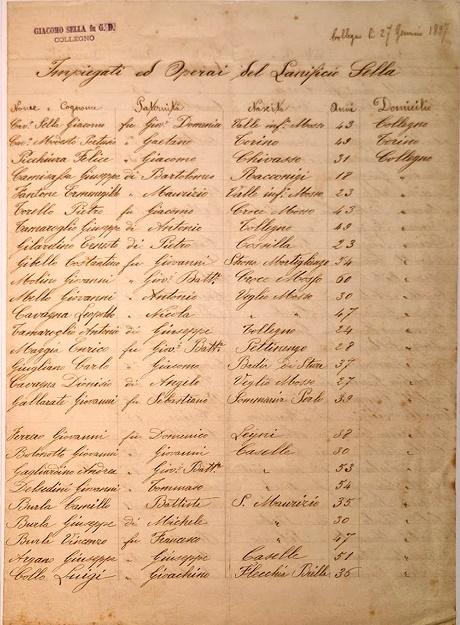 GIACOMO SELLA fu G. D.
COLLEGNO
Collegno li 27 Gennaio 1897
Impiegati ed Operai del Lanificio Sella
Nome e Cognome Paternità Nascita Anni Domicilio
Cav. Sella Giacomo fu Giov. Domenico Valle inf. Mosso 43 Collegno
Gaetano Torino 49 Torino
Picchiura Felice " Giacomo Chivasso 31 Collegno
Camisassa Giuseppe di Bartolomeo Racconigi 18 "
Fantone Ermenegildo " Maurizio Valle inf. Mosso 23 "
Torello Pietro fu Giacomo Croce Mosso 43 "
Tamaroglio Giuseppe di Antonio Collegno 49 "
Gilardino Ernesto di Pietro Cossila 23 "
Gibello Costantino fu Giovanni Strona Mortigliengo 34 "
Molino Giovanni " Giov. Batt. Croce Mosso 60 "
Mello Giovanni " Antonio Veglio Mosso 30 "
Cavagna Leopoldo " Nicola " 47 "
Tamaroglio Antonio di Giuseppe Collegno 24 "
Maggia Enrico fu Giov. Batt. Pettinengo 28 "
Giugliano Carlo " Giacomo Badia di Stura 37 "
Cavagna Dionisio di Angelo Veglio Mosso 27 "
Gallarati Giovanni fu Sebastiano Sommariva Perle 39 "
Ferrero Giovanni fu Domenico Leynì 38 "
Giovanni Caselle 30 "
Gagliardino Andrea " Giov. Batt. " 53 "
Giovanni " Tommaso " 54 "
Burla Camillo " Battista S. Maurizio 35 "
Burla Giuseppe di Michele " 30 "
Burla Vincenzo fu Francesco " 47 "
Giuseppe " Giuseppe Caselle 51 "
Collo Luigi " Gioachino Flecchia Biella 36 "